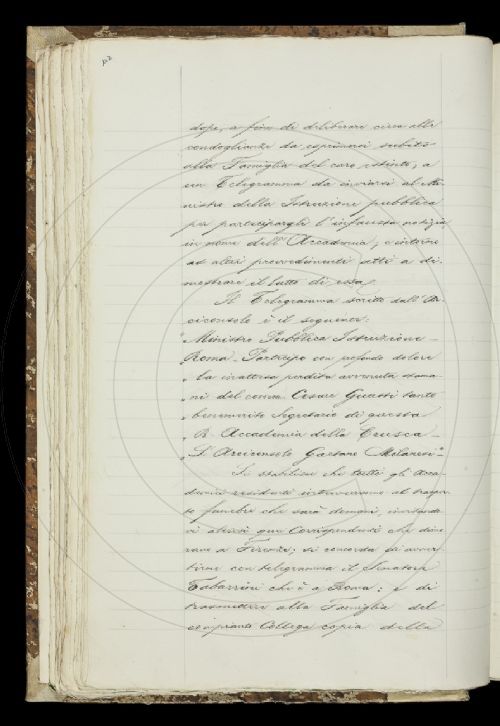 dopo, a fin di deliberare circa alle
condoglianze da esprimersi subito
alla Famiglia del caro estinto, a
un Telegramma da inviarsi al Mi-
nistro della Istruzione pubblica
per partecipargli l'infausta notizia
in nome dell'Accademia, e intorno
ad altri provvedimenti atti a di-
mostrare il lutto di essa.
Il Telegramma scritto dall'Ar-
ciconsolo è il seguente:
„Ministro Pubblica Istruzione –
„Roma – Partecipo con profondo dolore
„la inattesa perdita avvenuta stama-
„ni del comm. Cesare Guasti tanto
„benemerito Segretario di questa
„R. Accademia della Crusca –
„L'Arciconsolo Gaetano Milanesi"–
Si stabilisce che tutti gli Acca-
demici residenti interverranno al traspor-
to funebre che sarà domani, invitando-
vi altresì que' Corrispondenti che dimo-
rano a Firenze; si concorda di avver-
tirne con telegramma il Senatore
Tabarrini che è a Roma: e di
trasmettere alla Famiglia del
compianto Collega copia della